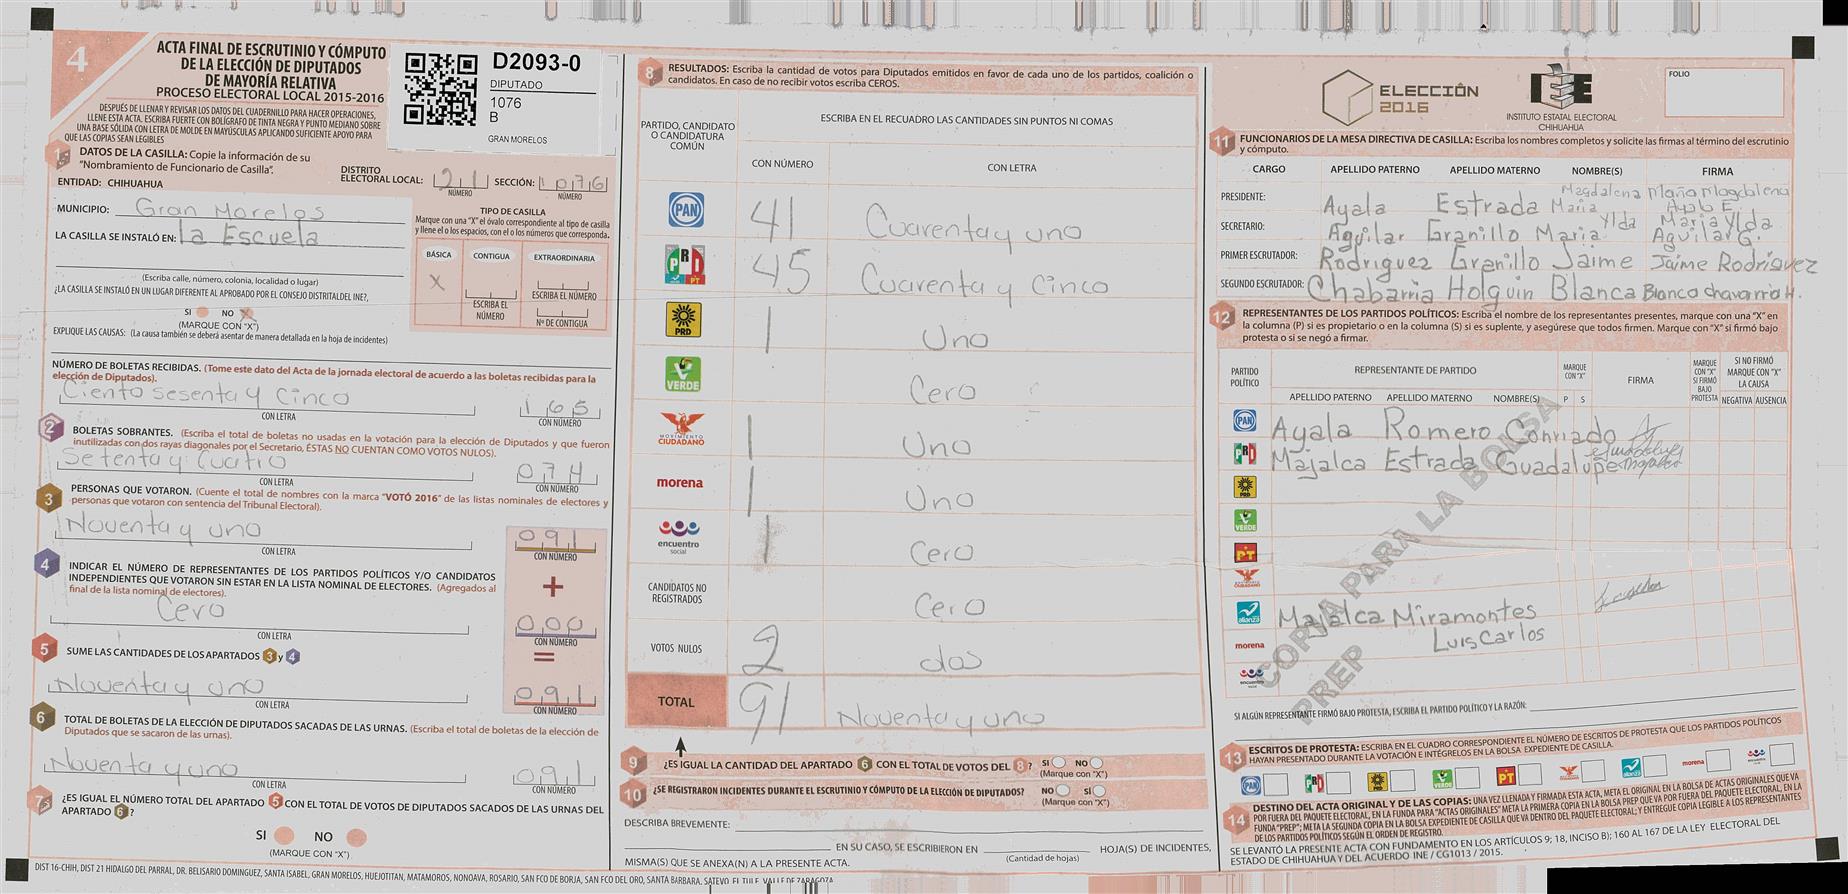 4
ACTA FINAL DE ESCRUTINIO Y CÓMPUTO
DE LA ELECCIÓN DE DIPUTADOS
DE MAYORÍA RELATIVA
PROCESO ELECTORAL LOCAL 2015-2016
DESPUÉS DE LLENAR Y REVISAR LOS DATOS DEL CUADERNILLO PARA HACER OPERACIONES,
LLENE ESTA ACTA. ESCRIBA FUERTE CON BOLÍGRAFO DE TINTA NEGRA Y PUNTO MEDIANO SOBRE
UNA BASE SÓLIDA CON LETRA DE MOLDE EN MAYÚSCULAS APLICANDO SUFICIENTE APOYO PARA
QUE LAS COPIAS SEAN LEGIBLES
D2093-0
DIPUTADO
1076
B
GRAN MORELOS
1 DATOS DE LA CASILLA: Copie la información de su
"Nombramiento de Funcionario de Casilla".
DISTRITO ELECTORAL LOCAL: 21 NÚMERO SECCIÓN: 1076 NÚMERO
ENTIDAD: CHIHUAHUA
MUNICIPIO: Gran Morelos
LA CASILLA SE INSTALÓ EN: la Escuela
(Escriba calle, número, colonia, localidad o lugar)
¿LA CASILLA SE INSTALÓ EN UN LUGAR DIFERENTE AL APROBADO POR EL CONSEJO DISTRITAL DEL INE?,
SI NO X
(MARQUE CON "X")
EXPLIQUE LAS CAUSAS: (La causa también se deberá asentar de manera detallada en la hoja de incidentes)
TIPO DE CASILLA
Marque con una "X" el óvalo correspondiente al tipo de casilla
y llene el o los espacios, con el o los números que corresponda.
BÁSICA CONTIGUA EXTRAORDINARIA
X
ESCRIBA EL NÚMERO
ESCRIBA EL NÚMERO
Nº DE CONTIGUA
NÚMERO DE BOLETAS RECIBIDAS. (Tome este dato del Acta de la jornada electoral de acuerdo a las boletas recibidas para la
elección de Diputados).
Ciento sesenta y Cinco 165
CON LETRA CON NÚMERO
2 BOLETAS SOBRANTES. (Escriba el total de boletas no usadas en la votación para la elección de Diputados y que fueron
inutilizadas con dos rayas diagonales por el Secretario, ÉSTAS NO CUENTAN COMO VOTOS NULOS).
Setenta y Cuatro 074
CON LETRA CON NÚMERO
3 PERSONAS QUE VOTARON. (Cuente el total de nombres con la marca "VOTÓ 2016" de las listas nominales de electores y
personas que votaron con sentencia del Tribunal Electoral).
Noventa y uno 091
CON LETRA CON NÚMERO
+
4 INDICAR EL NÚMERO DE REPRESENTANTES DE LOS PARTIDOS POLÍTICOS Y/O CANDIDATOS
INDEPENDIENTES QUE VOTARON SIN ESTAR EN LA LISTA NOMINAL DE ELECTORES. (Agregados al
final de la lista nominal de electores).
Cero 000
CON LETRA CON NÚMERO
=
5 SUME LAS CANTIDADES DE LOS APARTADOS 3 y 4
Noventa y uno 091
CON LETRA CON NÚMERO
6 TOTAL DE BOLETAS DE LA ELECCIÓN DE DIPUTADOS SACADAS DE LAS URNAS. (Escriba el total de boletas de la elección de
Diputados que se sacaron de las urnas).
Noventa y uno 091
CON LETRA CON NÚMERO
7 ¿ES IGUAL EL NÚMERO TOTAL DEL APARTADO 5 CON EL TOTAL DE VOTOS DE DIPUTADOS SACADOS DE LAS URNAS DEL
APARTADO 6?
SI NO
(MARQUE CON "X")
DIST 16-CHIH, DIST 21 HIDALGO DEL PARRAL, DR. BELISARIO DOMINGUEZ, SANTA ISABEL, GRAN MORELOS, HUEJOTITAN, MATAMOROS, NONOAVA, ROSARIO, SAN FCO DE BORJA, SAN FCO DEL ORO, SANTA BARBARA, SATEVO, EL TULE, VALLE DE ZARAGOZA
8 RESULTADOS: Escriba la cantidad de votos para Diputados emitidos en favor de cada uno de los partidos, coalición o
candidatos. En caso de no recibir votos escriba CEROS.
PARTIDO, CANDIDATO
O CANDIDATURA
COMÚN
ESCRIBA EN EL RECUADRO LAS CANTIDADES SIN PUNTOS NI COMAS
CON NÚMERO CON LETRA
PAN 41 Cuarenta y uno
PRD PT 45 Cuarenta y Cinco
PRD 1 Uno
VERDE Cero
MOVIMIENTO CIUDADANO 1 Uno
morena 1 Uno
encuentro social 1 Cero
CANDIDATOS NO REGISTRADOS Cero
VOTOS NULOS 2 dos
TOTAL 91 Noventa y uno
9 ¿ES IGUAL LA CANTIDAD DEL APARTADO 6 CON EL TOTAL DE VOTOS DEL 8? SI NO
(Marque con "X")
10 ¿SE REGISTRARON INCIDENTES DURANTE EL ESCRUTINIO Y CÓMPUTO DE LA ELECCIÓN DE DIPUTADOS? NO SI
(Marque con "X")
DESCRIBA BREVEMENTE:
EN SU CASO, SE ESCRIBIERON EN HOJA(S) DE INCIDENTES,
(Cantidad de hojas)
MISMA(S) QUE SE ANEXA(N) A LA PRESENTE ACTA.
ELECCIÓN
2016
IEE
INSTITUTO ESTATAL ELECTORAL
CHIHUAHUA
FOLIO
11 FUNCIONARIOS DE LA MESA DIRECTIVA DE CASILLA: Escriba los nombres completos y solicite las firmas al término del escrutinio
y cómputo.
CARGO APELLIDO PATERNO APELLIDO MATERNO NOMBRE(S) FIRMA
PRESIDENTE: Ayala Estrada Magdalena Maria Maria Magdalena Ayala E.
SECRETARIO: Aguilar Granillo Maria Ylda Maria Ylda Aguilar G.
PRIMER ESCRUTADOR: Rodriguez Granillo Jaime Jaime Rodriguez
SEGUNDO ESCRUTADOR: Chabarria Holguin Blanca Blanca chavarria H.
12 REPRESENTANTES DE LOS PARTIDOS POLÍTICOS: Escriba el nombre de los representantes presentes, marque con una "X" en
la columna (P) si es propietario o en la columna (S) si es suplente, y asegúrese que todos firmen. Marque con "X" si firmó bajo
protesta o si se negó a firmar.
PARTIDO POLÍTICO
REPRESENTANTE DE PARTIDO
MARQUE CON "X"
FIRMA
MARQUE CON "X" SI FIRMÓ BAJO PROTESTA
SI NO FIRMÓ MARQUE CON "X" LA CAUSA
APELLIDO PATERNO APELLIDO MATERNO NOMBRE(S) P S NEGATIVA AUSENCIA
PAN Ayala Romero Conrado
PRD Majalca Estrada Guadalupe
PRD
VERDE
PT
MOVIMIENTO CIUDADANO
alianza Majalca Miramontes
Luis Carlos
morena
encuentro social
COPIA PARA LA BOLSA
PREP
SI ALGÚN REPRESENTANTE FIRMÓ BAJO PROTESTA, ESCRIBA EL PARTIDO POLÍTICO Y LA RAZÓN:
13 ESCRITOS DE PROTESTA: ESCRIBA EN EL CUADRO CORRESPONDIENTE EL NÚMERO DE ESCRITOS DE PROTESTA QUE LOS PARTIDOS POLÍTICOS
HAYAN PRESENTADO DURANTE LA VOTACIÓN E INTÉGRELOS EN LA BOLSA EXPEDIENTE DE CASILLA.
PAN PRD PRD VERDE PT alianza morena
14 DESTINO DEL ACTA ORIGINAL Y DE LAS COPIAS: UNA VEZ LLENADA Y FIRMADA ESTA ACTA, META EL ORIGINAL EN LA BOLSA DE ACTAS ORIGINALES QUE VA
POR FUERA DEL PAQUETE ELECTORAL, EN LA FUNDA PARA "ACTAS ORIGINALES" META LA PRIMERA COPIA EN LA BOLSA PREP QUE VA POR FUERA DEL PAQUETE ELECTORAL, EN LA
FUNDA "PREP"; META LA SEGUNDA COPIA EN LA BOLSA EXPEDIENTE DE CASILLA QUE VA DENTRO DEL PAQUETE ELECTORAL; Y ENTREGUE COPIA LEGIBLE A LOS REPRESENTANTES
DE LOS PARTIDOS POLÍTICOS SEGÚN EL ORDEN DE REGISTRO.
SE LEVANTÓ LA PRESENTE ACTA CON FUNDAMENTO EN LOS ARTÍCULOS 9; 18, INCISO B); 160 AL 167 DE LA LEY ELECTORAL DEL
ESTADO DE CHIHUAHUA Y DEL ACUERDO INE / CG1013 / 2015.